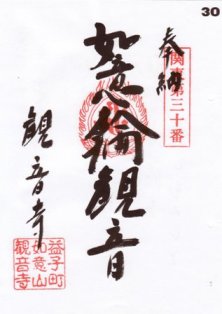 30
奉納
関東第三十番
如意輪観音
観音寺
益子町
如意山
観音寺